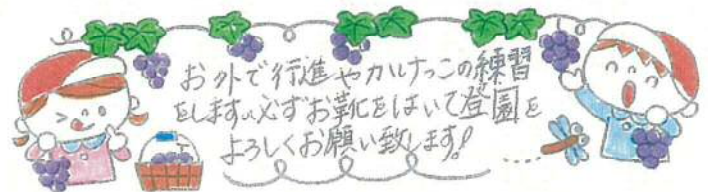 お外で行進やかけっこの練習
をします。必ずお靴をはいて登園を
よろしくお願い致します!